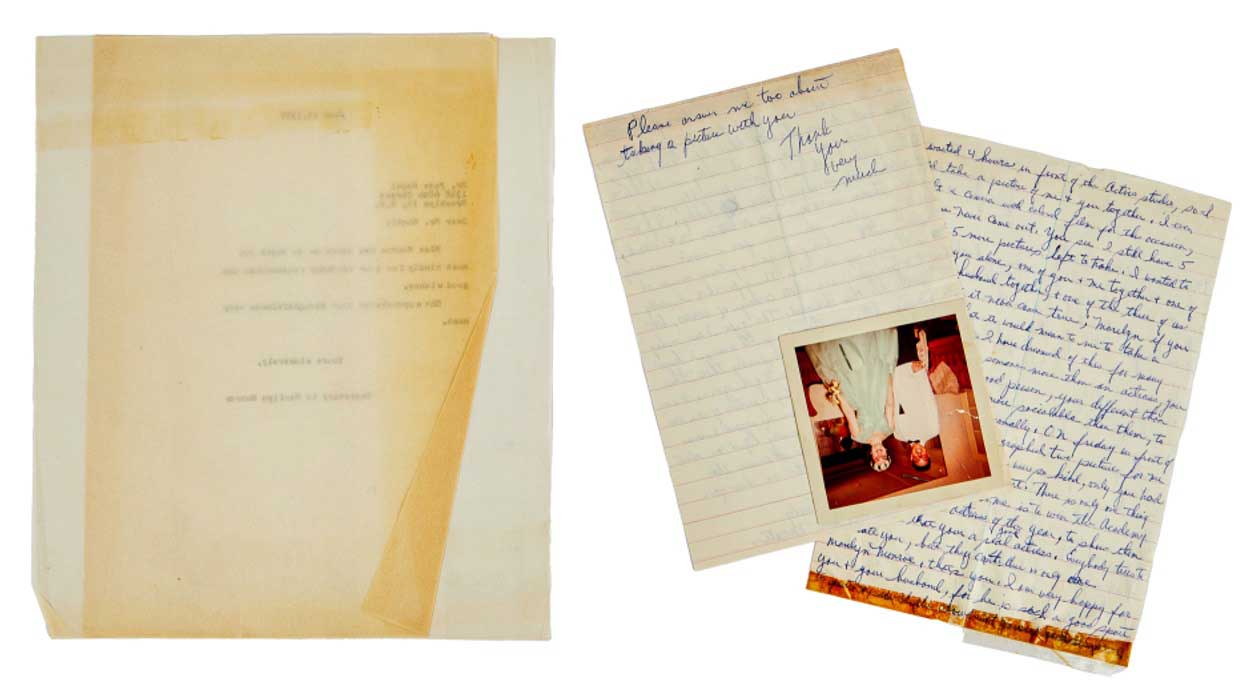 Dear Mr.
Miss Monroe has asked me to thank you
most kindly for your birthday remembrance and
good wishes.
She appreciates your thoughtfulness very
much.
Yours sincerely,
Secretary to Marilyn Monroe
Please answer me too about
taking a picture with you
Thank
you
very
much
waited 4 hours in front of the Actors studio, so I
take a picture of me & you together. I even
a camera with colord film for the occasion,
have come out. You see I still have 5
5 more pictures left to take. I wanted to
you alone, one of you & me together & one of
husband together, & one of the three of us
it never came true, Marilyn if you
it would mean to me to take a
I have dreamed of this for many
someone more then an actress, you
good person, your different then
more socialable then them, to
. On friday in front of
two picture for me
were so kind, only you had
. There is only one thing
is to win the Academy
actress of the year, to show them
that your a real actress. Everybody tries to
you, but they can't
Marilyn Monroe, thats you. I am very happy for
you & your husband, for he is such a good sport